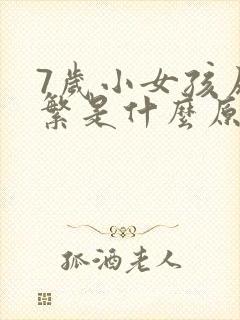 7歲小女孩
繁是什麼原
孤酒老人